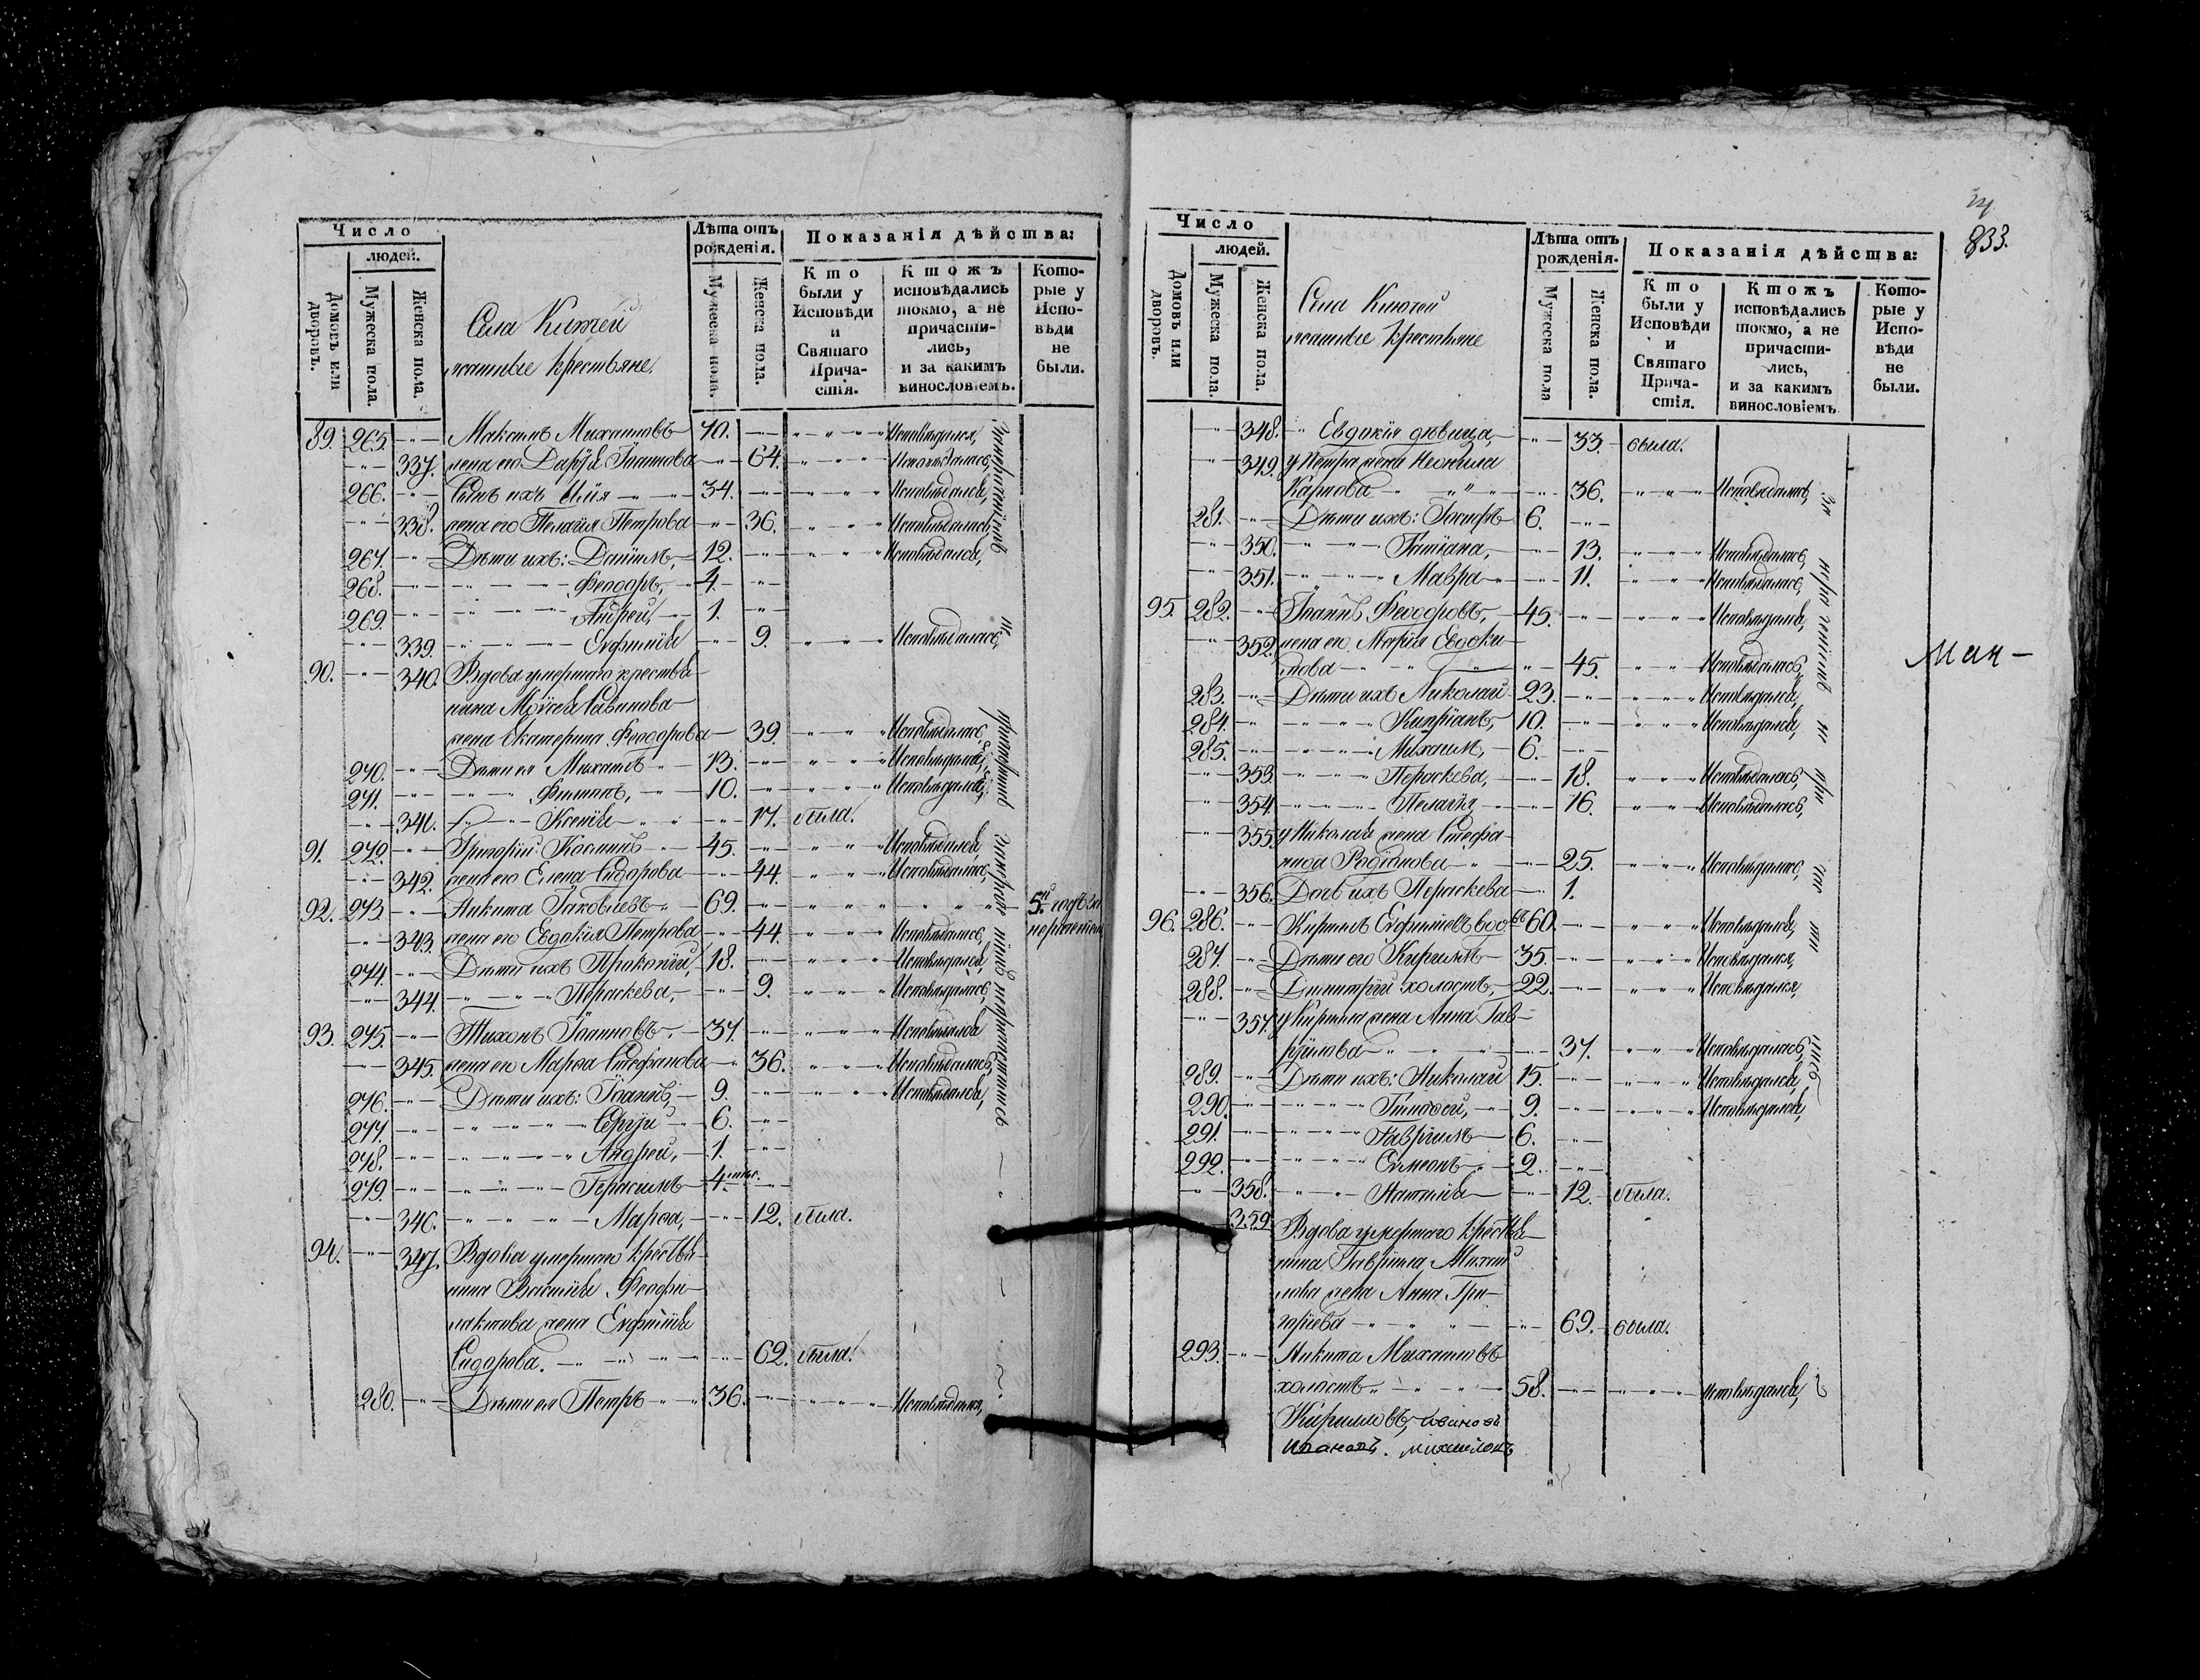 Число
людей.
Домовъ или дворовъ.
Мужеска пола.
Женска пола.
Села Ключей
ясашные крестьяне.
Лѣта отъ рожденія.
Мужеска пола.
Женска пола.
Показанія дѣйства:
Кто были у Исповѣди и Святаго Причастія.
Ктожъ исповѣдались токмо, а не причастились, и за какимъ винословіемъ.
Которые у Исповѣди не были.
89. 265. Максимъ Михаиловъ 70. Исповѣдался,
337. жена его Дарья Іоаннова 64. Исповѣдалась,
266. Сынъ ихъ Илія 34. Исповѣдался,
338. жена его Пелагія Петрова 36. Исповѣдалась,
267. Дѣти ихъ: Даніилъ, 12. Исповѣдался,
268. Феодоръ, 4.
269. Андрей, 1.
339. Евфимія 9. Исповѣдалась,
90. 340. Вдова умершаго крестья-
нина Моисея Савинова
жена Екатерина Феодорова 39. Исповѣдалась,
270. Дѣти ея Михаилъ 13. Исповѣдался,
271. Филиппъ, 10. Исповѣдался,
341. Ксенія 17. была.
91. 272. Григорій Косминъ 45. Исповѣдался
342. жена его Елена Сидорова 44. Исповѣдалась,
92. 273. Никита Іаковлевъ 69. 5й годъ за
343. жена его Евдокія Петрова 44. Исповѣдалась, нераченіемъ
274. Дѣти ихъ Прокопій, 18. Исповѣдался,
344. Параскева, 9. Исповѣдалась,
93. 275. Тихонъ Іоанновъ 37. Исповѣдался
345. жена его Марѳа Стефанова 36. Исповѣдалась,
276. Дѣти ихъ: Іоаннъ, 9. Исповѣдался,
277. Сергій 6.
278. Андрей, 1.
279. Герасимъ 4 мѣс.
346. Марѳа, 12. была.
94. 347. Вдова умершаго крестья-
нина Василія Феофи-
лактова жена Евфимія
Сидорова. 62. была.
280. Дѣти ея Петръ 36. Исповѣдался,
833.
Число
людей.
Домовъ или дворовъ.
Мужеска пола.
Женска пола.
Села Ключей
ясашные крестьяне
Лѣта отъ рожденія.
Мужеска пола
Женска пола.
Показанія дѣйства:
Кто были у Исповѣди и Святаго Причастія.
Ктожъ исповѣдались токмо, а не причастились, и за какимъ винословіемъ
Которые у Исповѣди не были.
348. Евдокія дѣвица, 33. была.
349. у Петра жена Неонила
Карпова 36. Исповѣдалась,
281. Дѣти ихъ: Іосифъ 6.
350. Татіана, 13. Исповѣдалась,
351. Мавра 11. Исповѣдалась,
95. 282. Іоаннъ Феодоровъ, 45. Исповѣдался,
352. жена его Марія Евдоки-
мова 45. Исповѣдалась,
283. Дѣти ихъ Николай 23. Исповѣдался,
284. Кипріанъ, 10. Исповѣдался,
285. Михаилъ, 6.
353. Параскева, 18. Исповѣдалась,
354. Пелагія, 16. Исповѣдалась,
355. у Николая жена Стефа-
нида Родіонова 25. Исповѣдалась,
356. Дочь ихъ Параскева 1.
96. 286. Кириллъ Евфимовъ вдовъ 60. Исповѣдался,
287. Дѣти его Кириллъ 35. Исповѣдался,
288. Димитрій холостъ, 22. Исповѣдался,
357. у Кирилла жена Анна Гав-
рилова 37. Исповѣдалась,
289. Дѣти ихъ: Николай 15. Исповѣдался,
290. Тимоѳей, 9. Исповѣдался,
291. Гавріилъ 6.
292. Симеонъ 2.
358. Наталія 12. была.
359. Вдова умершаго крестья-
нина Гавріила Михаи-
лова жена Анна Гри-
горіева 69. была.
293. Никита Михаиловъ
холостъ 58. Исповѣдался,
Кирилловъ, Ивановъ
Михайловъ